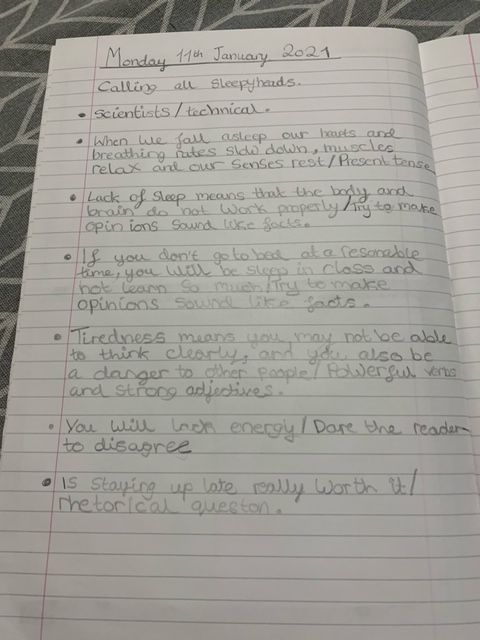 Monday 11th January 2021
Calling all sleepyheads.
• scientists/technical.
• When we fall asleep our hearts and
breathing rates slow down, muscles
relax and our senses rest/Present tense
• Lack of sleep means that the body and
brain do not work properly/Try to make
opinions sound like facts.
• If you don't go to bed at a resonable
time, you will be sleep in class and
not learn so much/Try to make
opinions sound like facts.
• Tiredness means you may not be able
to think clearly, and you also be
a danger to other people/Powerful verbs
and strong adjectives.
• You will lack energy/Dare the reader
to disagree
• Is staying up late really worth it/
rhetorical queston.